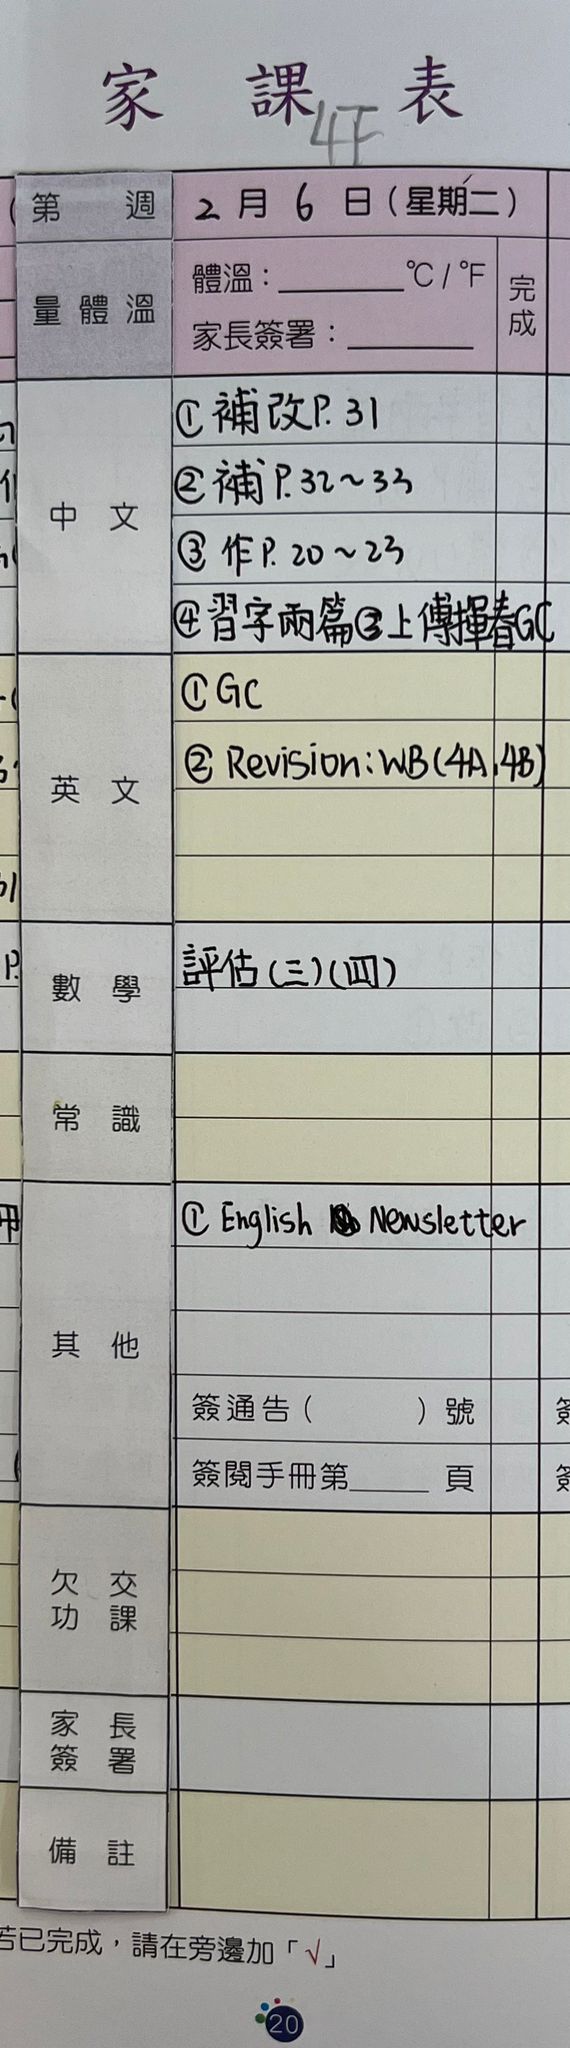 家 課 表
4F
第 週 2 月 6 日 (星期二)
量體溫 體溫：______°C / °F 完成
家長簽署：______
中文
① 補改P. 31
② 補 P. 32～33
③ 作P. 20～23
④ 習字兩篇③上傳揮春GC
英文
① GC
② Revision: WB(4A,4B)
數學
評估(三)(四)
常識
其他
① English Newsletter
簽通告( )號
簽閱手冊第______頁
欠交功課
家長簽署
備註
若已完成，請在旁邊加「√」
20